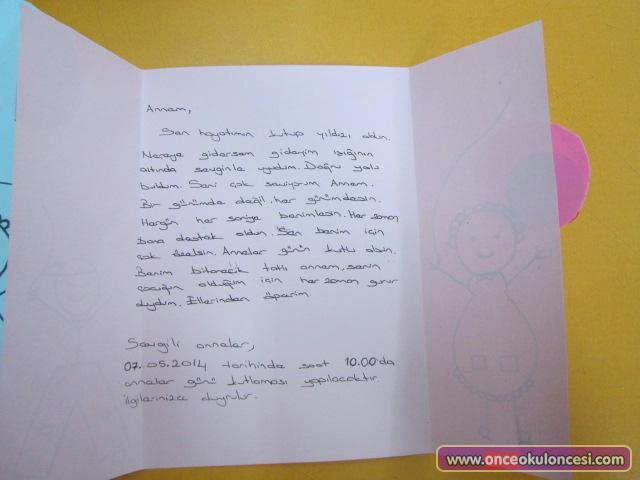 Annem,
Sen hayatımın kutup yıldızı oldun.
Nereye gidersem gideyim ışığının
altında sevginle uyudum. Doğru yolu
buldum. Seni çok seviyorum Annem.
Bir günümde değil, her günümdesin.
Hergün her saniye benimlesin. Her zaman
bana destek oldun. Sen benim için
çok özelsin. Anneler günün kutlu olsun.
Benim bitanecik tatlı annem, senin
çocuğun olduğum için her zaman gurur
duydum. Ellerinden öperim
Sevgili anneler,
07.05.2014 tarihinde saat 10.00'da
anneler günü kutlaması yapılacaktır.
İlgilerinize duyrulur.
www.onceokuloncesi.com